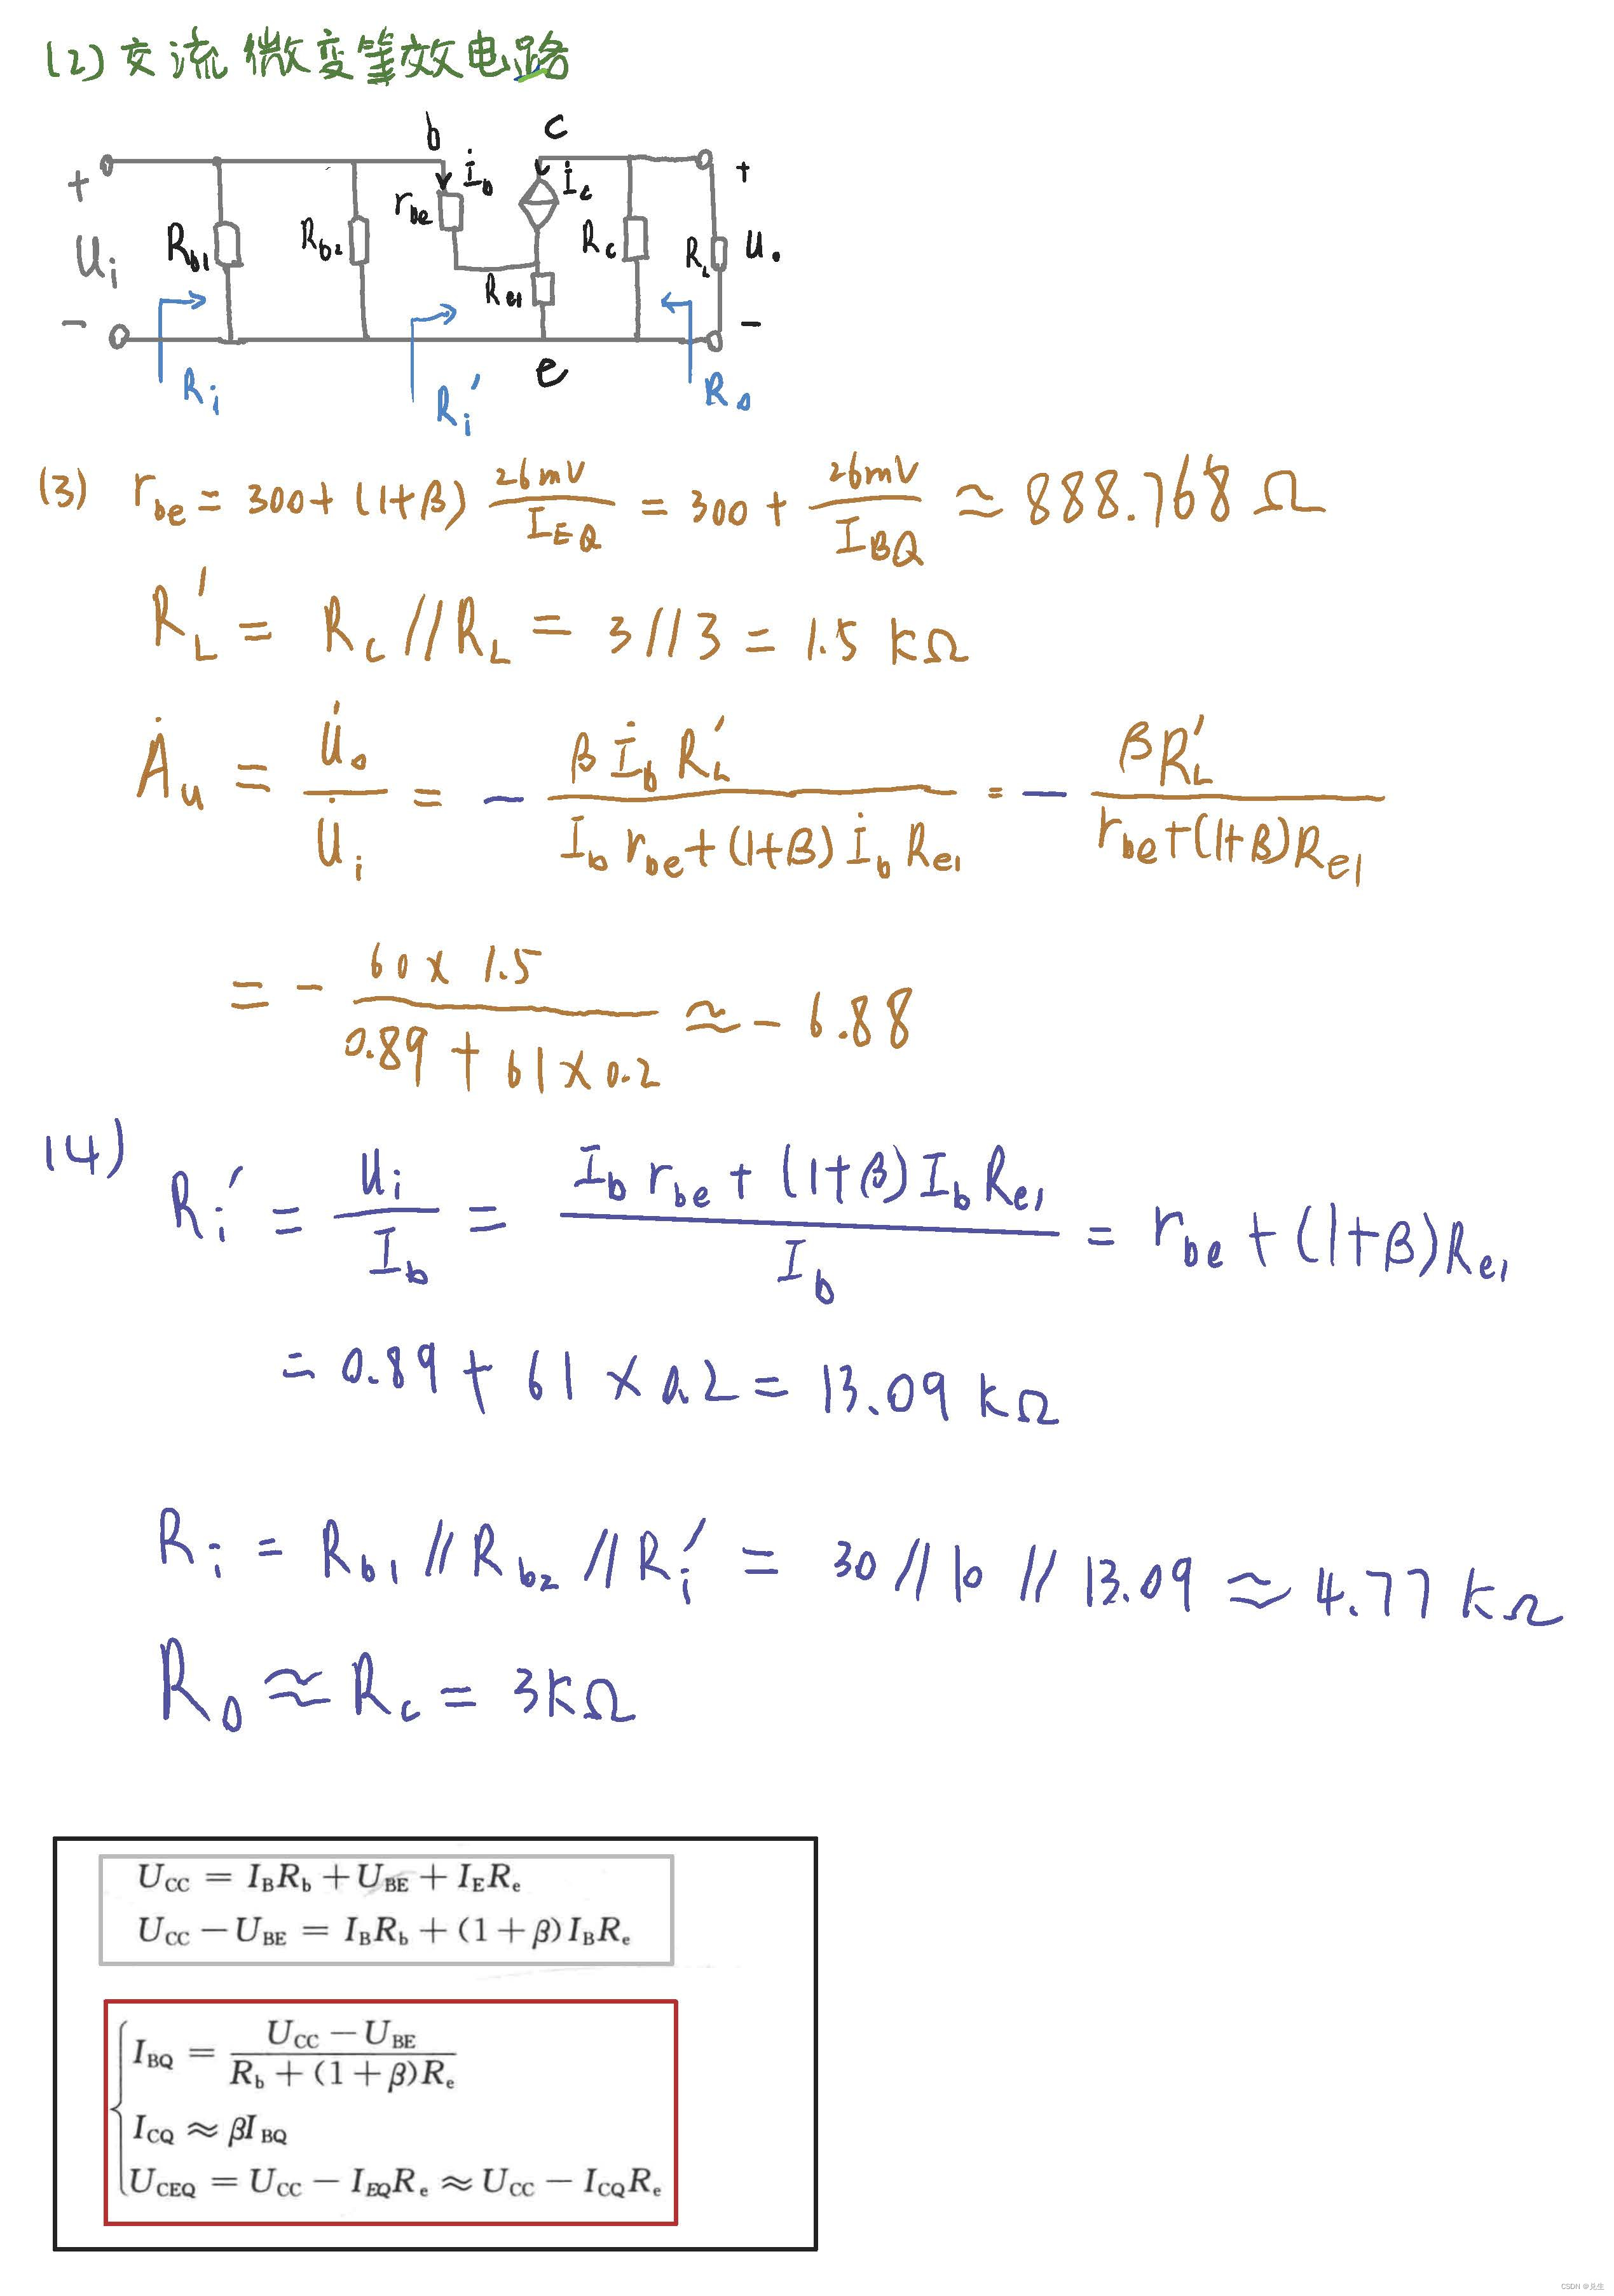 (2) 交流微变等效电路
b c
+ İb İc +
rbe
Ui Rb1 Rb2 Rc RL u。
Re1
− −
e
Ri Ri′ Ro
(3) rbe = 300 + (1+β) 26mV/IEQ = 300 + 26mV/IBQ ≈ 888.768 Ω
RL′ = Rc // RL = 3 // 3 = 1.5 KΩ
U̇o
Ȧu = U̇o/U̇i = − βİbRL′/(Ib rbe + (1+β) İb Re1) = − βRL′/(rbe + (1+β)Re1)
= − 60 × 1.5/(0.89 + 61 × 0.2) ≈ − 6.88
(4)
Ri′ = Ui/Ib = (Ib rbe + (1+β) Ib Re1)/Ib = rbe + (1+β)Re1
= 0.89 + 61 × 0.2 = 13.09 KΩ
Ri = Rb1 // Rb2 // Ri′ = 30 // 10 // 13.09 ≈ 4.77 KΩ
Ro ≈ Rc = 3KΩ
UCC = IBRb + UBE + IERe
UCC − UBE = IBRb + (1+β)IBRe
IBQ = (UCC − UBE)/(Rb + (1+β)Re)
ICQ ≈ βIBQ
UCEQ = UCC − IEQRe ≈ UCC − ICQRe